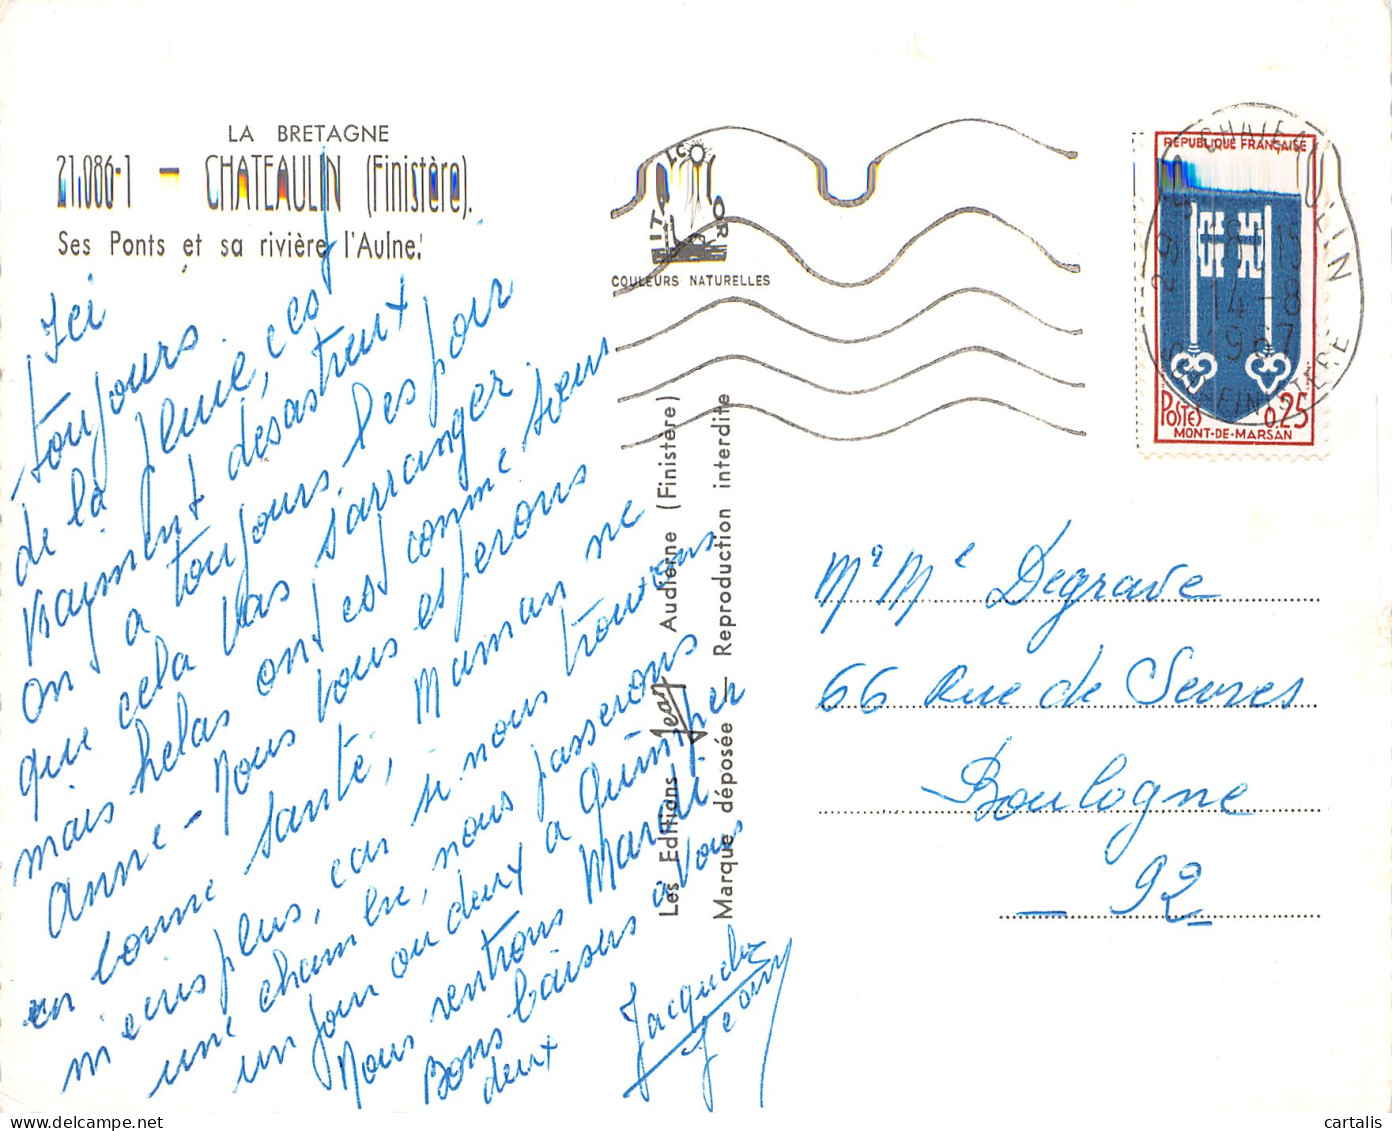 LA BRETAGNE
21.086-1 — CHATEAULIN (Finistère).
Ses Ponts et sa rivière l'Aulne.
Ici
toujours
de la pluie, c'est
vraiment désastreux
on a toujours l'espoir
que cela va s'arranger
mais hélas on est comme soeur
anne - Nous vous espérons
en bonne santé, Maman ne
m'écris plus, car si nous trouvions
une chambre, nous passerons
un jour ou deux a Quimper
Nous rentrons Mardi.
Bons baisers a vous
deux
Jacqueline
Jean
COULEURS NATURELLES
Les Editions Jean Audierne (Finistère)
Marque déposée — Reproduction interdite
REPUBLIQUE FRANÇAISE
POSTES 0,25
MONT-DE-MARSAN
CHATEAULIN
29
8 H 15
14-8
1967
FINISTERE
Mr Me Degrave
66 Rue de Sevres
Boulogne
- 92 -
cartalis